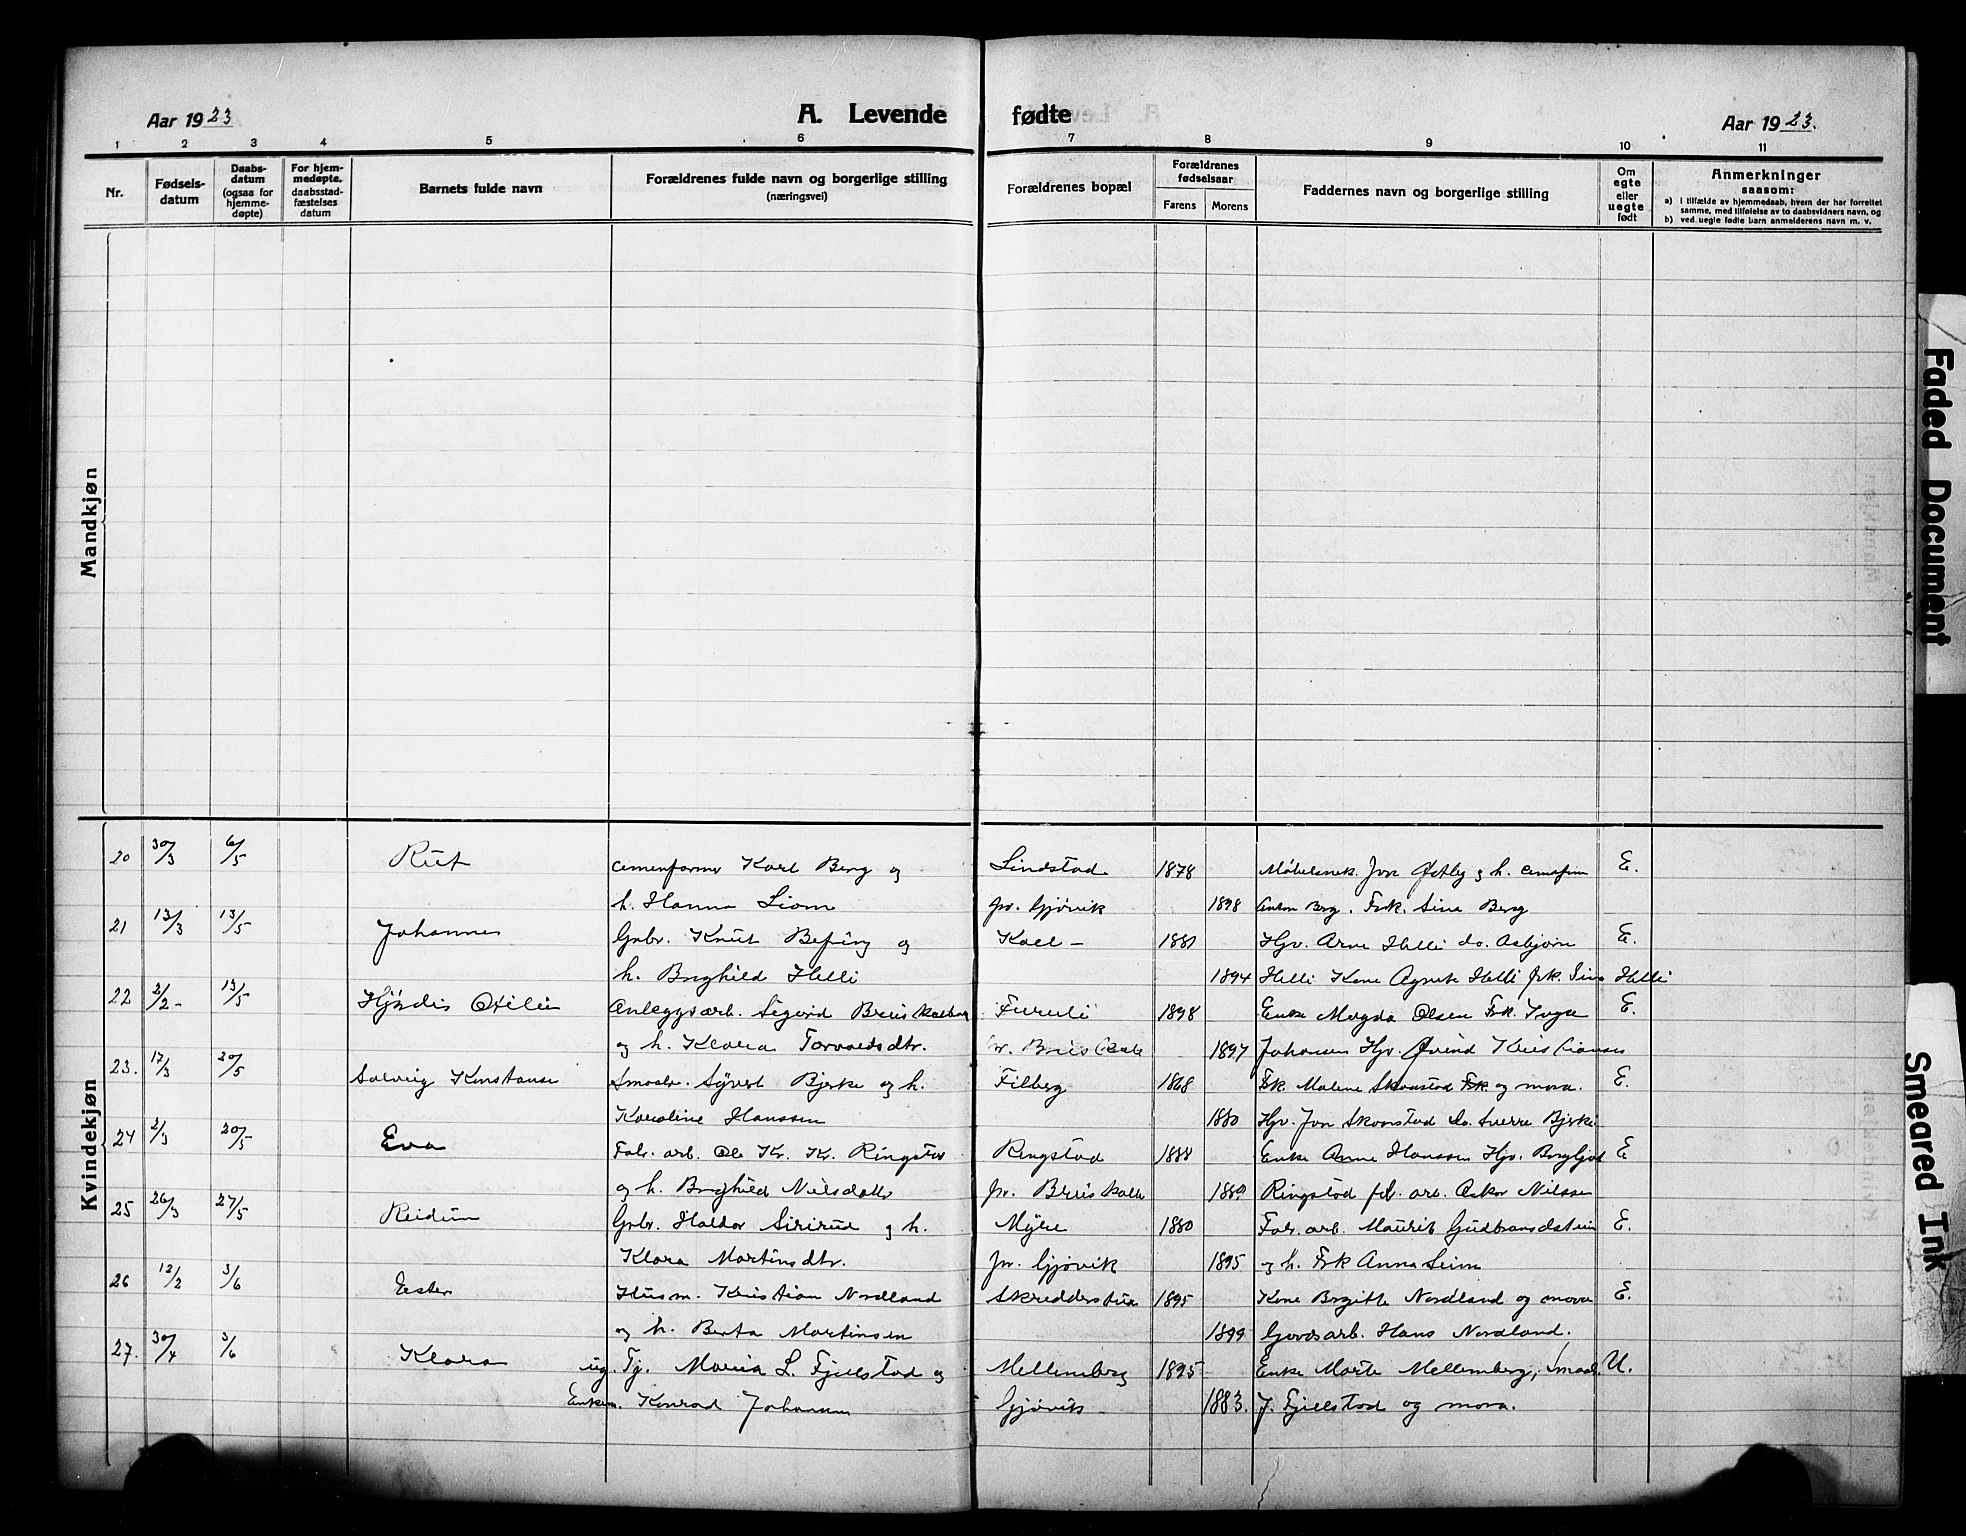 Aar 1923
A. Levende fødte
Aar 1923.
1 2 3 4 5 6 7 8 9 10 11
Nr.
Fødsels-
datum
Daabs-
datum
(ogsaa for
hjemme-
døpte)
For hjem-
medøpte,
daabsstad-
fæstelses
datum
Barnets fulde navn
Forældrenes fulde navn og borgerlige stilling
(næringsvei)
Forældrenes bopæl
Forældrenes
fødselsaar
Farens Morens
Faddernes navn og borgerlige stilling
Om
egte
eller
uegte
født
Anmerkninger
saasom:
a) I tilfælde av hjemmedaab, hvem der har forrettet
samme, med tilføielse av to daabsvidners navn, og
b) ved uegte fødte barn anmelderens navn m. v.
Mandkjøn
Kvindekjøn
20 30/3 6/5 Rut Karl Berg og Lindstad 1878 Møbelsnek. Jon Østby og h. E.
h. Hanna Liom pr. Gjøvik 1898 Anton Berg. Frk. Sina Berg
21 13/3 13/5 Johannes Gbr. Knut og 1881 Hjv. Arne Helli do. Asbjørn E.
h. Borghild Helli 1894 Helli Kone Agnete Helli frk. Helli
22 2/2 - 13/5 Hjördis Otilie Anleggsarb. Sigurd Furuli 1898 Enke Magda Olsen Frk. Inga E.
og h. Klara Torvaldsdtr. 1897 Johansen Hjv. Øivind Kristiansen
23. 17/3 20/5 Solveig Konstanse Smaabr. Syvert Bjerke og h. Filberg 1868 Frk. Malene Skonstad Frk og mora. E.
Karoline Hanssen 1880 Hjv. Jon Skonstad do. Sverre Bjerke
24 2/3 20/5 Eva Fabr. arb. Ole Kr. K. Ringstad Ringstad 1888 Enke Anne Hanssen Hjv. Borgljot E
og h. Borghild Nilsdatter pr. 1889 Ringstad fbr. arb. Oskar Nilssen
25 26/3 27/5 Reidun Gbr. Haldor Sirirud og h. Myre 1880 Fabr. arb. Maurits Gudbrandsstuen E.
Klara Martinsdtr. pr. Gjøvik 1895 og h. Frk Anna Seim
26 12/2 3/6 Ester Husm. Kristian Nordland Skredderstua 1895 Kone Birgitte Nordland og mora E.
og h. Berta Martinsen 1899 Gaardsarb. Hans Nordland.
27. 30/4 3/6 Klara ug. Tj. Maria L. Fjellstad og Mellemberg 1895 Enke Marte Mellemberg, Smaabr. U.
Enkem. Konrad Johansen Gjøvik - 1883. J. Fjellstad og mora.
Faded Document
Smeared Ink